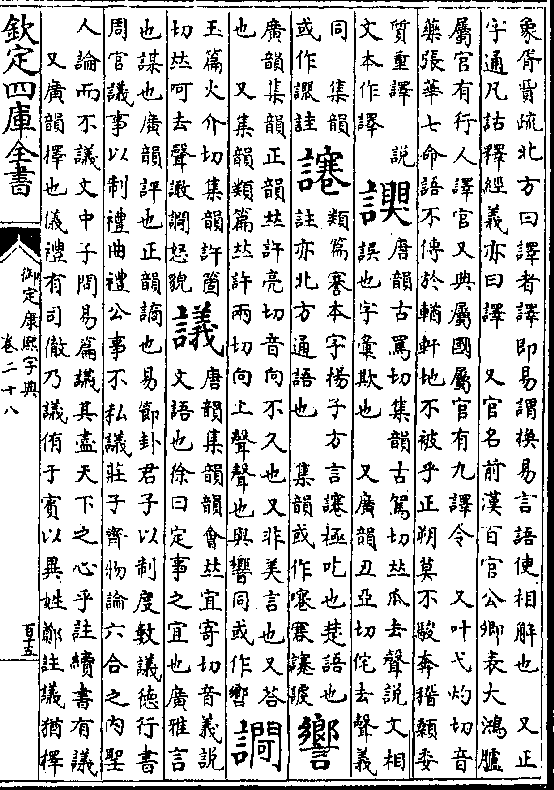 象胥賈疏北方曰譯者譯即易謂換易言語使相解也　又正
字通凡詁釋經義亦曰譯　又官名前漢百官公卿表大鴻臚
屬官有行人譯官又典屬國屬官有九譯令　又叶弋灼切音
藥張華七命語不傳於輶軒地不被乎正朔莫不駿奔稽顙委
質重譯　說　唐韻古罵切集韻古駡切𠀤瓜去聲說文相
文本作譯　誤也字彙欺也　又廣韻丑亞切侘去聲義
同　集韻　類篇謇本字揚子方言極吃也楚語也
或作　註亦北方通語也　集韻或作
廣韻集韻正韻𠀤許亮切音向不久也又非美言也又荅
也　又集韻類篇𠀤許兩切向上聲聲也與響同或作
玉篇火介切集韻許箇　議　唐韻集韻韻會𠀤宜寄切音義說
切𠀤呵去聲怒貌　文語也徐曰定事之宜也廣雅言
也謀也廣韻評也正韻謫也易節卦君子以制度數議德行書
周官議事以制禮曲禮公事不私議莊子齊物論六合之內聖
人論而不議文中子問易篇議其盡天下之心乎註續書有議
又廣韻擇也儀禮有司徹乃議侑于賓以異姓鄭註議猶擇
欽定四庫全書
御定康熙字典
卷二十八
百五